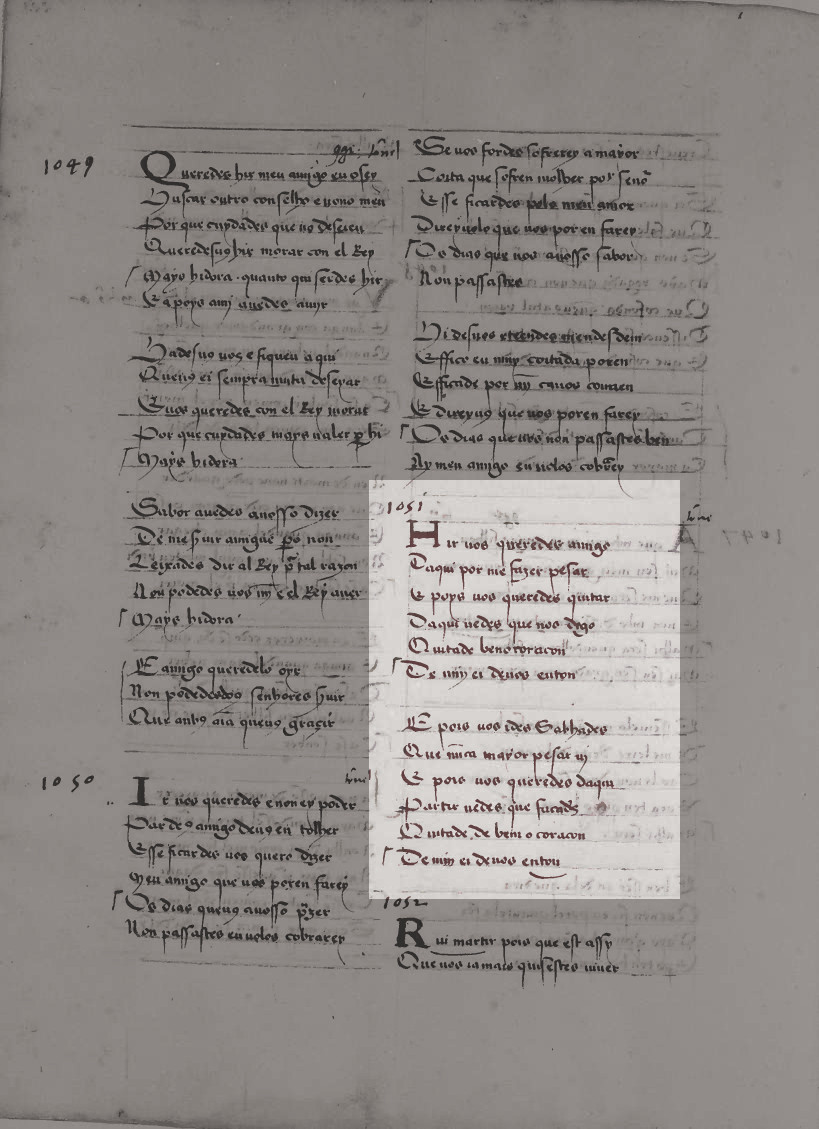 1049
Queredes hir meu amigo eu o sey
Buscar outro conselho e no no meu
Por que cuydades que uo deseieu
Queredesu9 hir morar con el Rey
Mays hidora. quanto qui serdes hir
Ca poys amj auedes a uijr
Hadesuo uos e fiqueu a qui
Que uos ei sempra muita deseyar
Euos queredes con el Rey morar
Por que cuydades mays ualer p hi
Mays hidora
Sabor auedes a uosso dizer
De me seruir amigue
Leixades dir al Rey p tal razon
Non podedes uos e el Rey auer
Mays hidora
E amigo queredelo oyr
Non podedes dous senhores seruir
1050
Ir uos queredes e non ey poder
Par de9 amigo deu9 en tolher
Esse ficardes uos quero dizer
Meu amigo que uos poren farey
Os dias queu9 a uosso pzer
Non passastes eu uolos cobrarey
Se uos fordes sofrerey a mayor
Coita que sofreu molher por senor
Esse ficardes pelo meu amor
Direyuolo que uos por en farey
Os dias que uos a uosso sabor
Non passastes
Esficade por mj
E direyu9 que uos poren farey
Os dias que uos non passastes ben
Ay meu amigo eu uolos cobrey
1051
Hir uos queredes amigo
Daqui por me fazer pesar
E poys uos queredes quitar
Daqui uedes que uos digo
Quitade beno coracon
De min ei deuos entou
E pois uos ides Sabhades
Que nuca mayor pesar uj
E pois uos queredes daqui
Partir uedes que facades
Quitade de ben o coracon
De min ei deuos entou
1052
Rui martir pois que est assy
Que uos iamais quisestes uiuer